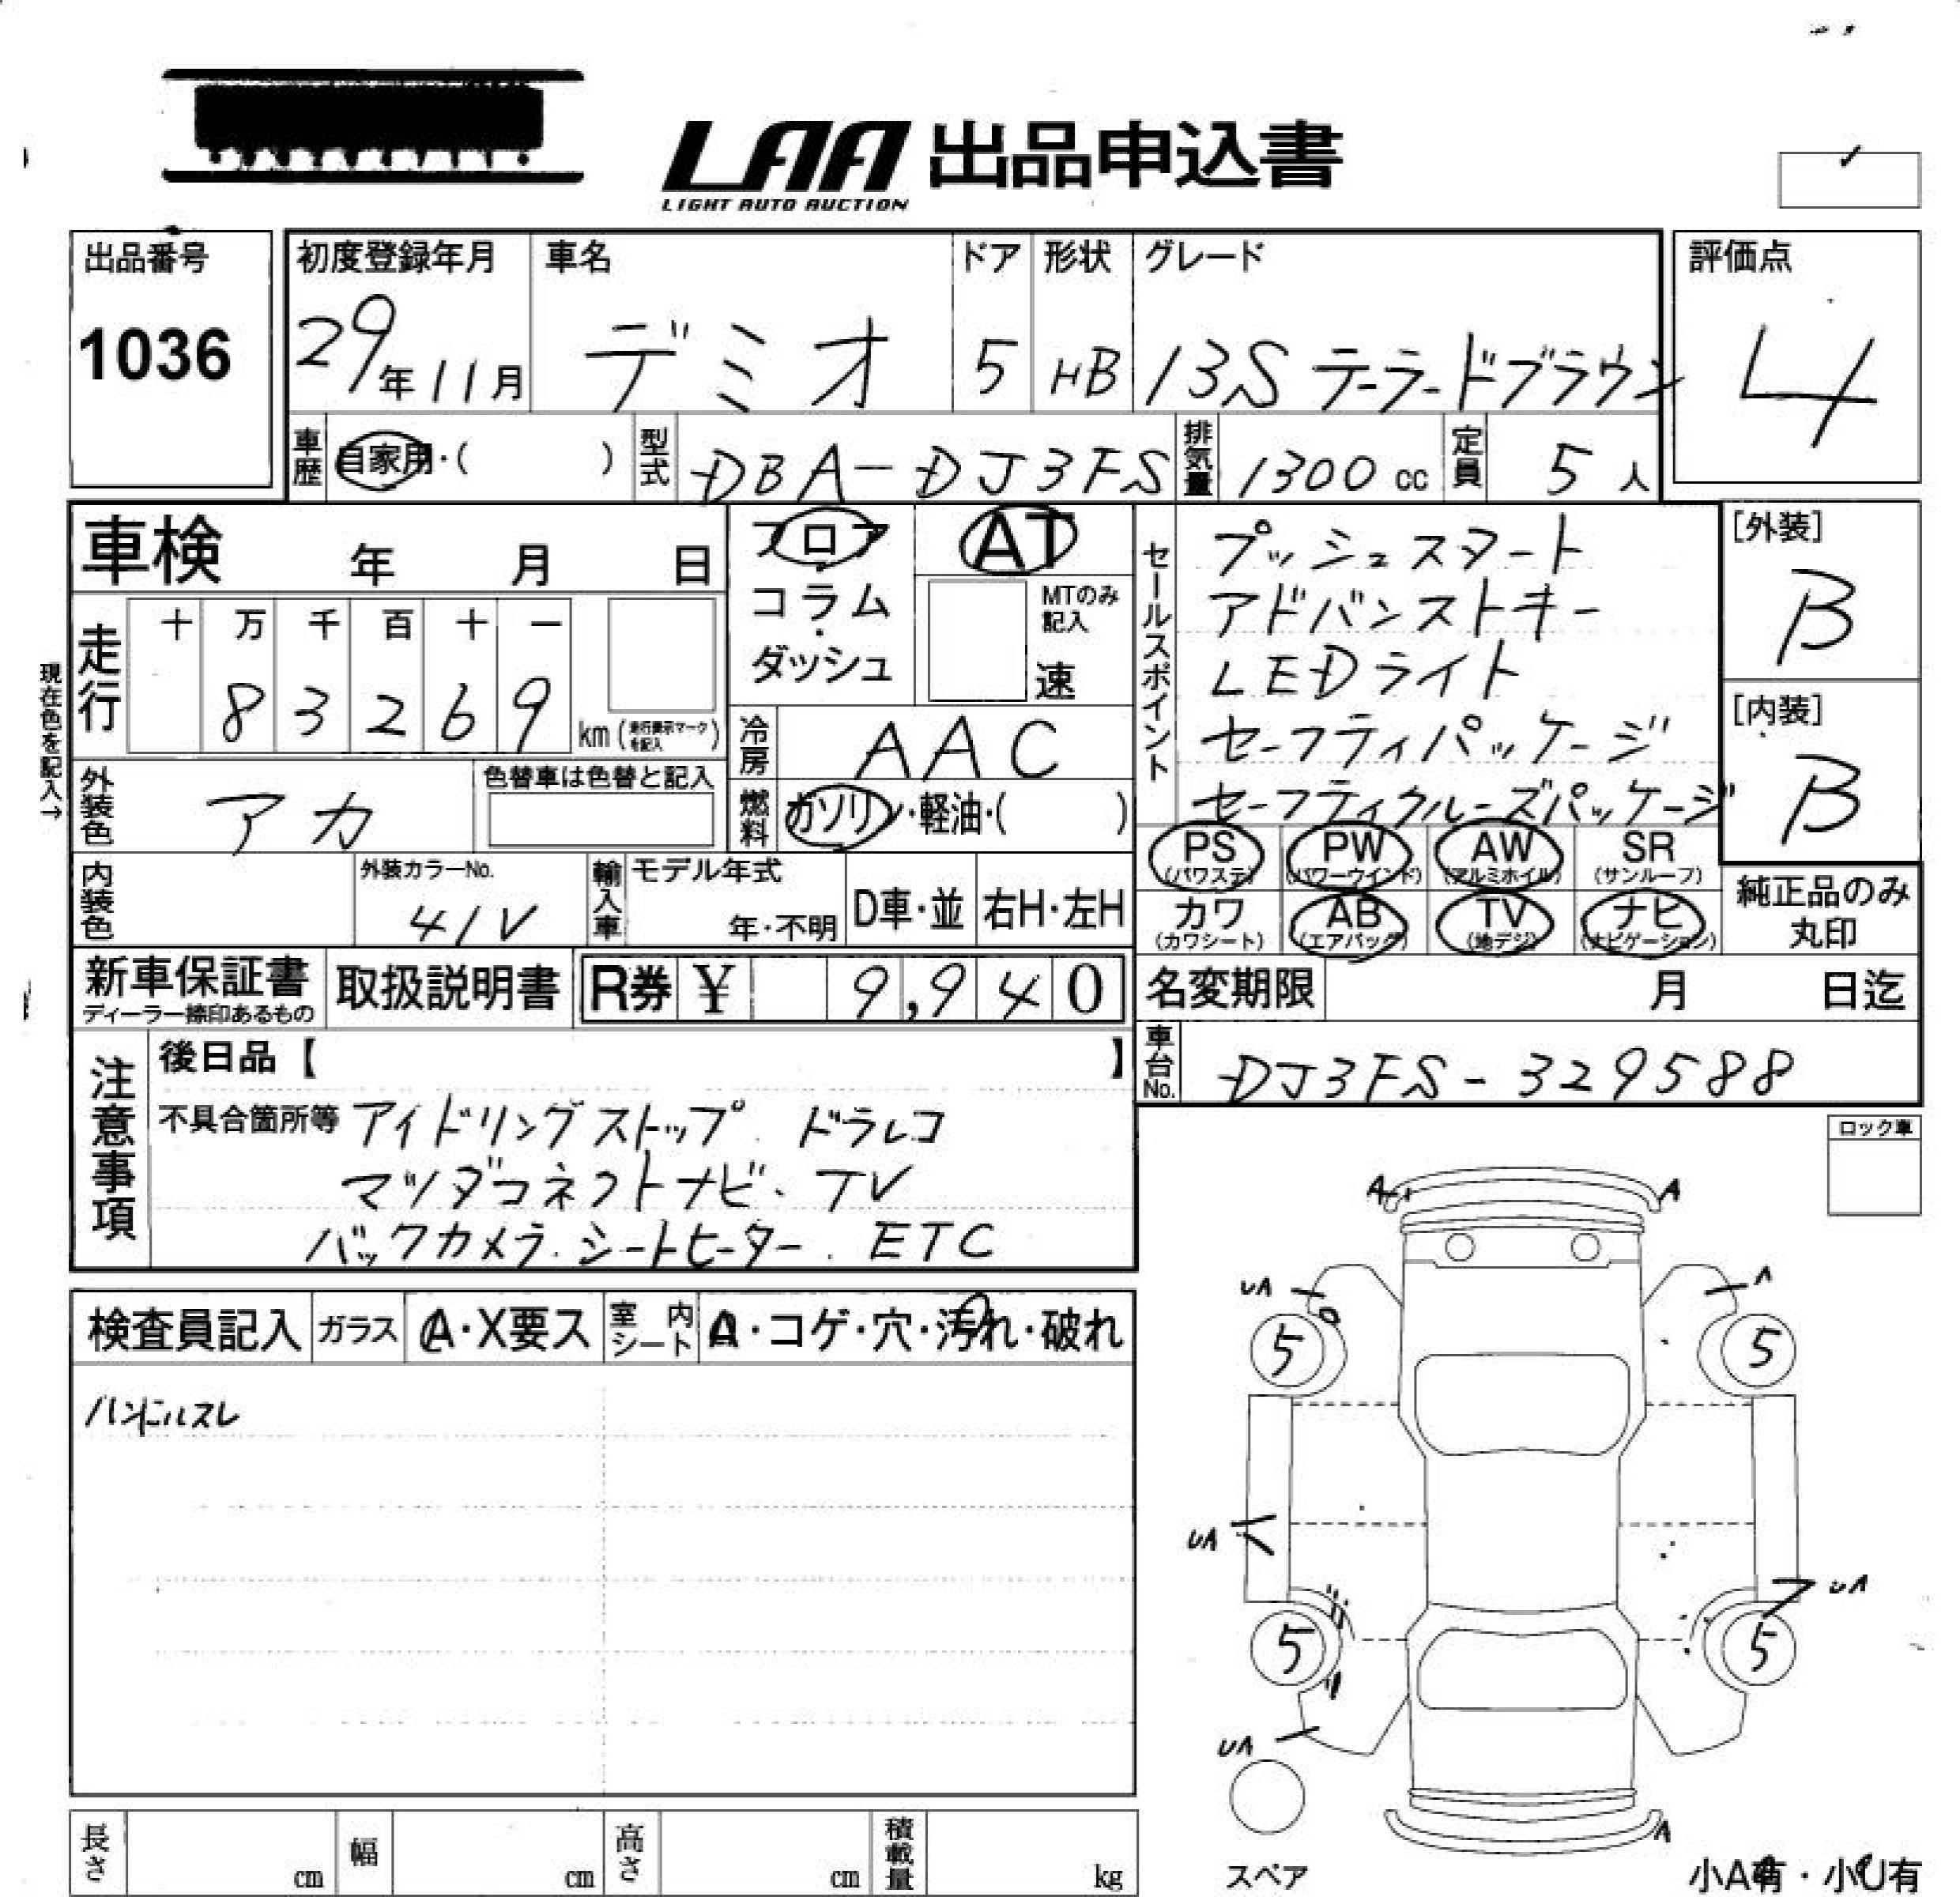 LAA 出品申込書
LIGHT AUTO AUCTION
出品番号
1036
初度登録年月
29年11月
車名
デミオ
ドア
5
形状
HB
グレード
13S テーラードブラウン
評価点
4
車歴 自家用・( )
型式 DBA-DJ3FS
排気量 1300 cc
定員 5 人
車検 年 月 日
フロア
コラム・
ダッシュ
AT
MTのみ
記入
速
セールスポイント
プッシュスタート
アドバンストキー
LEDライト
セーフティパッケージ
セーフティクルーズパッケージ
[外装]
B
[内装]
B
現在色を記入→
走行
十 万 千 百 十 一
8 3 2 6 9
km (走行表示マークを記入)
冷房 AAC
外装色 アカ
色替車は色替と記入
燃料 ガソリン・軽油・( )
PS (パワステ)
PW (パワーウインド)
AW (アルミホイル)
SR (サンルーフ)
内装色
外装カラーNo.
41V
輸入車
モデル年式
年・不明
D車・並
右H・左H
カワ (カワシート)
AB (エアバッグ)
TV (地デジ)
ナビ (ナビゲーション)
純正品のみ
丸印
新車保証書
ディーラー捺印あるもの
取扱説明書
R券 ¥ 9,940
名変期限 月 日迄
注意事項
後日品【 】
車台No. DJ3FS-329588
不具合箇所等 アイドリングストップ. ドラレコ
マツダコネクトナビ. TV
バックカメラ. シートヒーター. ETC
ロック車
検査員記入
ガラス A・X要ス
室内シート A・コゲ・穴・汚れ・破れ
ハンドルスレ
A A
UA A
5 5
UA
UA
5 5
UA
A
スペア
小A有・小U有
長さ cm
幅 cm
高さ cm
積載量 kg